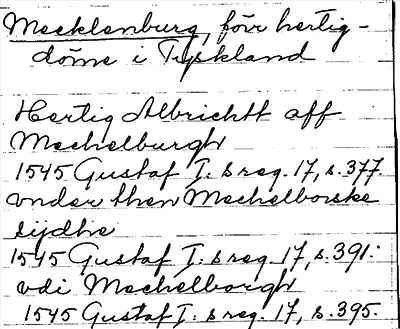 Mecklenburg, förr hertig-
döme i Tyskland
Hertig Albrichtt aff
Mechelburgh
1545 Gustaf I:s reg. 17, s. 377.
vnder then Mechelborske
sijdhe
1545 Gustaf I:s reg. 17, s. 391.
vdi Mechelborgh
1545 Gustaf I:s reg. 17, s. 395.